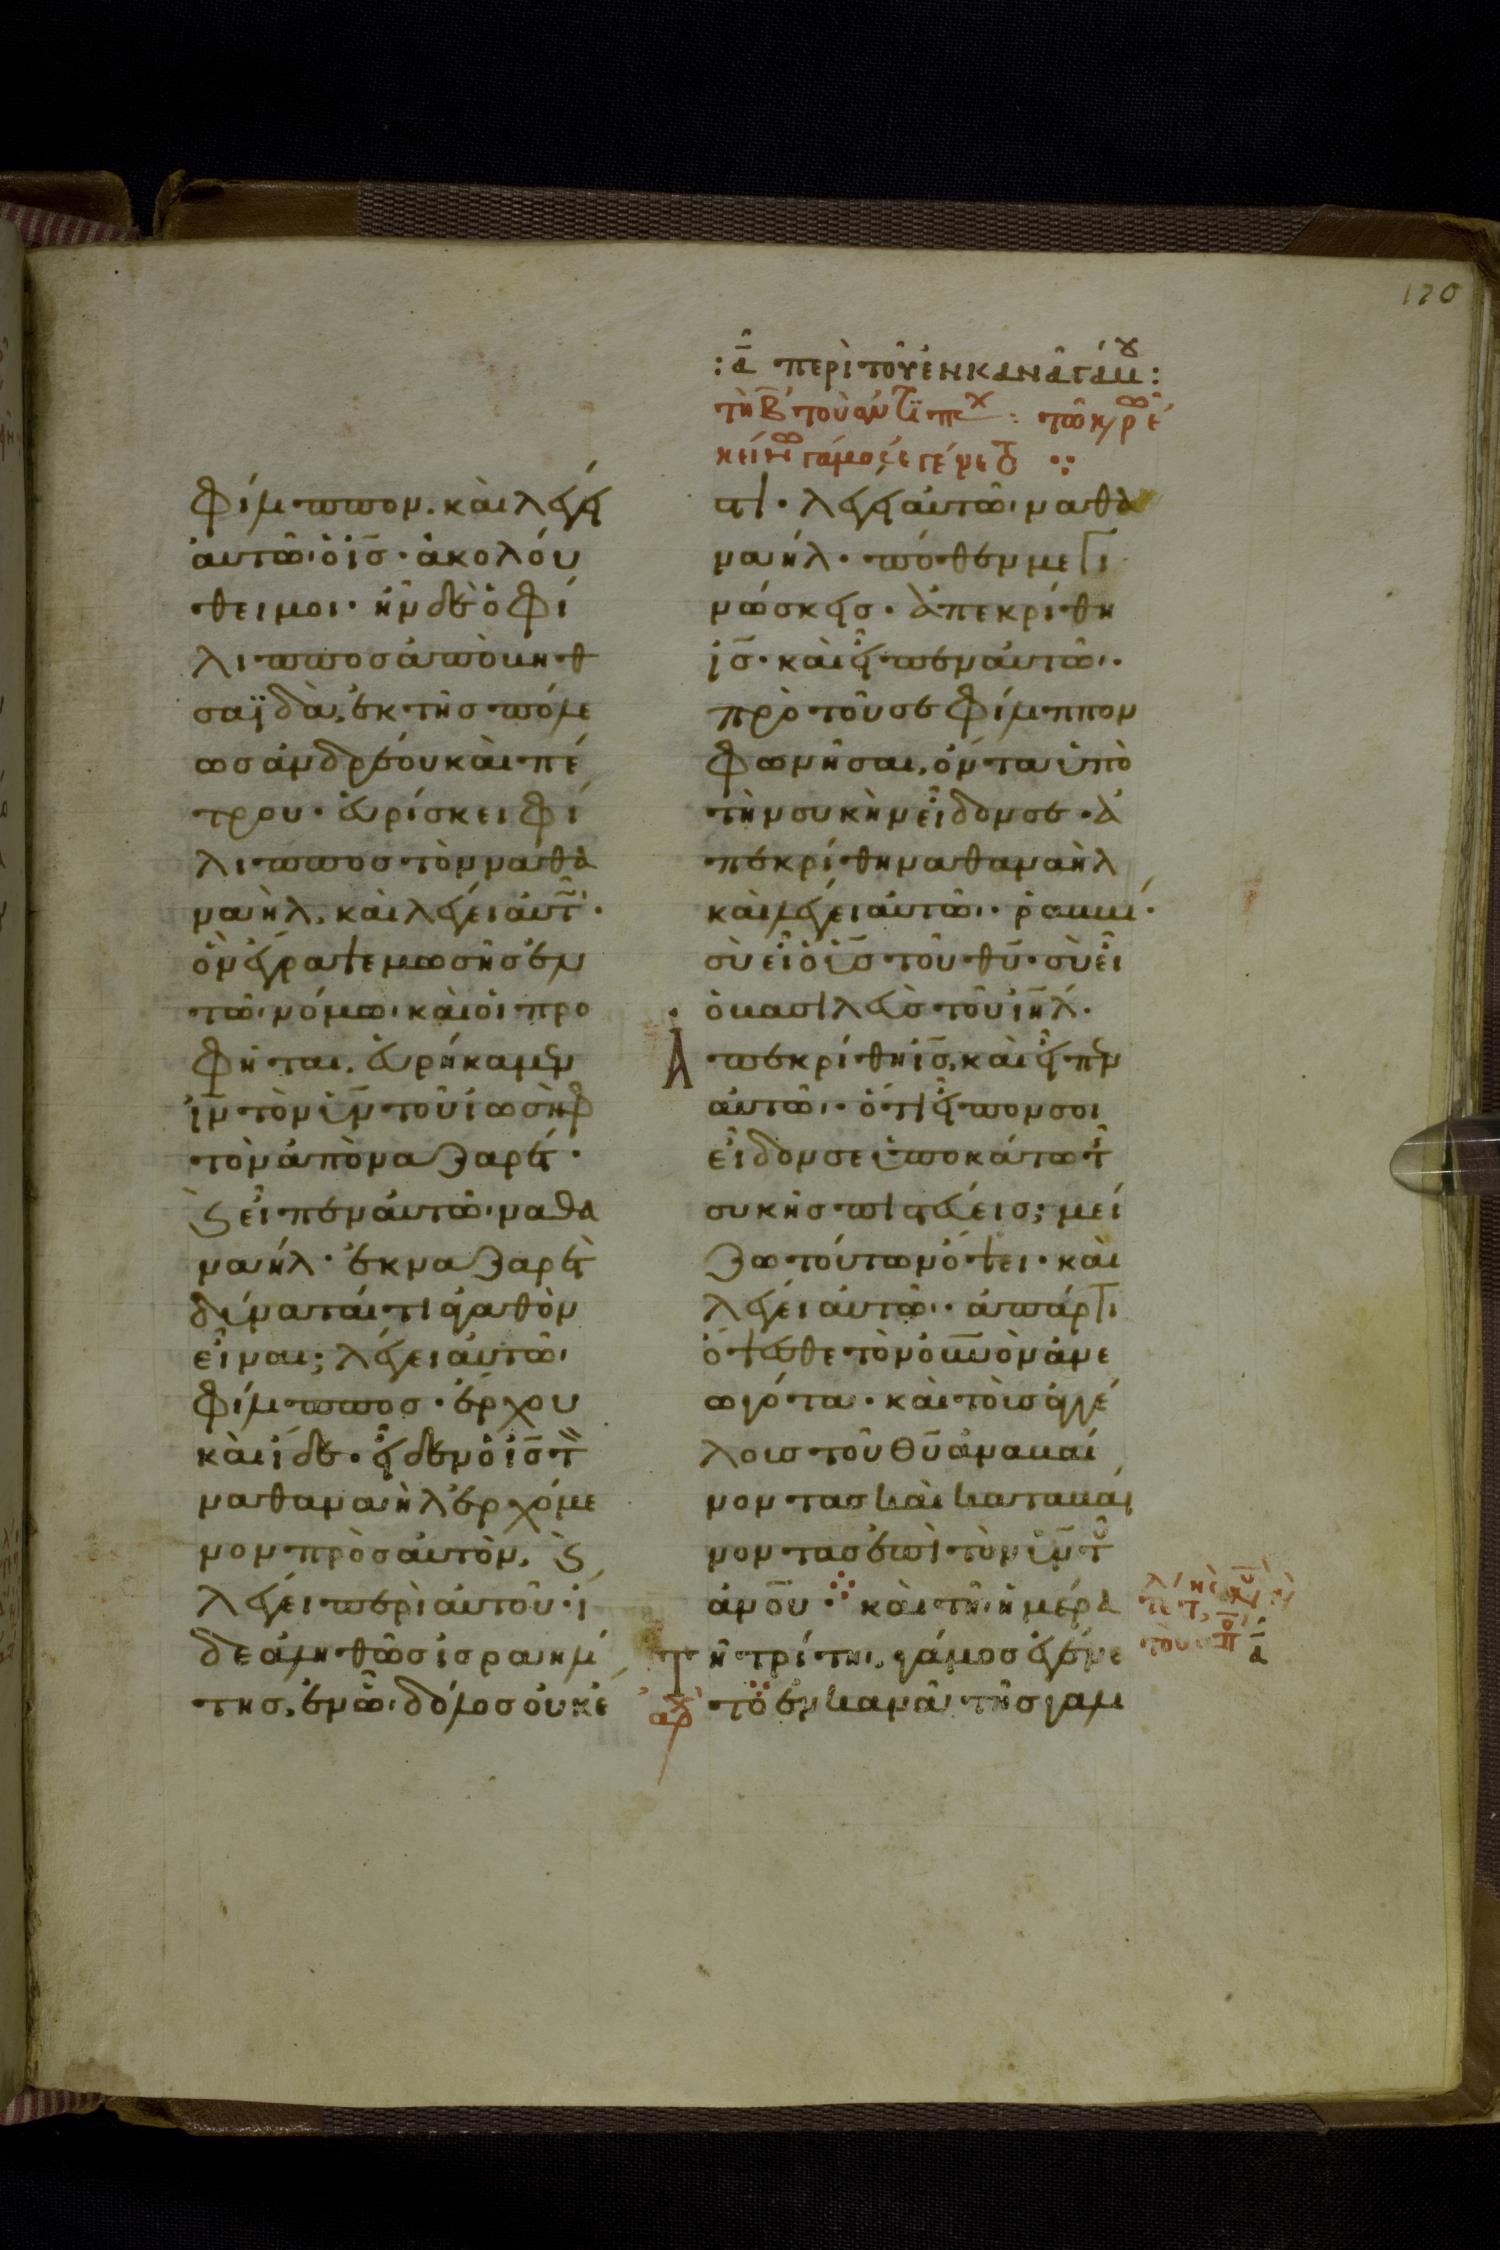 170
:α̅ περὶ τοῦ ἐν κανᾶ γάμου:
φίλιππον. καὶ λέγει
αὐτῶ· ὁ ι̅ς̅· ἀκολού
θει μοι· ἦν δὲ ὁ φί
λιππος ἀπὸ βηθ
σαϊδὰ, ἐκ τῆς πόλε
ως ἀνδρέου καὶ πέ
τρου· εὑρίσκει φί
λιππος τὸν ναθα
ναὴλ, καὶ λέγει αὐτῶ·
ὃν ἔγραψε μωσῆς ἐν
τῶ νόμω καὶ οἱ προ
φῆται, εὑρήκαμεν
ι̅ν̅ τὸν υ̅ν̅ τοῦ ἰωσὴφ
τὸν ἀπὸ ναζαρέτ·
ϛ εἶπεν αὐτῶ ναθα
ναήλ· ἐκ ναζαρὲτ
δύναται τὶ ἀγαθὸν
εἶναι; λέγει αὐτῶ
φίλιππος· ἔρχου
καὶ ἴδε· εἶδεν ὁ ι̅ς̅ τὸν
ναθαναὴλ ἐρχόμε
νον πρὸς αὐτὸν, ϛ
λέγει περὶ αὐτοῦ· ἴ
δε ἀληθῶς ἰσραηλί
της, ἐν ὧ δόλος οὐκ ἔ
στι· λέγει αὐτῶ ναθα
ναήλ· πόθεν με γι
νώσκεις· ἀπεκρίθη
ι̅ς̅· καὶ εἶπεν αὐτῶ·
πρὸ τοῦ σε φίλιππον
φωνῆσαι, ὄντα ὑπὸ
τὴν συκὴν εἶδον σε· ἀ
πεκρίθη ναθαναὴλ
καὶ λέγει αὐτῶ· ῥαββί·
σὺ εἶ ὁ υ̅ς̅ τοῦ θ̅υ̅· σὺ εἶ
ὁ βασιλεὺς τοῦ ι̅η̅λ̅·
Ἀπεκρίθη ι̅ς̅, καὶ εἶπεν
αὐτῶ· ὅτι εἶπον σοι
εἶδον σε ὑποκάτω τῆς
συκῆς πιστεύεις; μεί
ζω τούτων ὄψει· καὶ
λέγει αὐτῶ· ἀπάρτι
ὄψεσθε τὸν ο̅υ̅ν̅ο̅ν ἀνε
ωγότα· καὶ τοὺς ἀγγέ
λους τοῦ θ̅υ̅ ἀναβαί
νοντας καὶ καταβαί
νοντας ἐπὶ τὸν υ̅ν̅ τοῦ
ἀν̅ο̅υ· καὶ τῆ ἡμέρα
Τῆ τρίτη, γάμος ἐγένε
το ἐν κανᾶ τῆς γαλι
α̅
ἀρχ